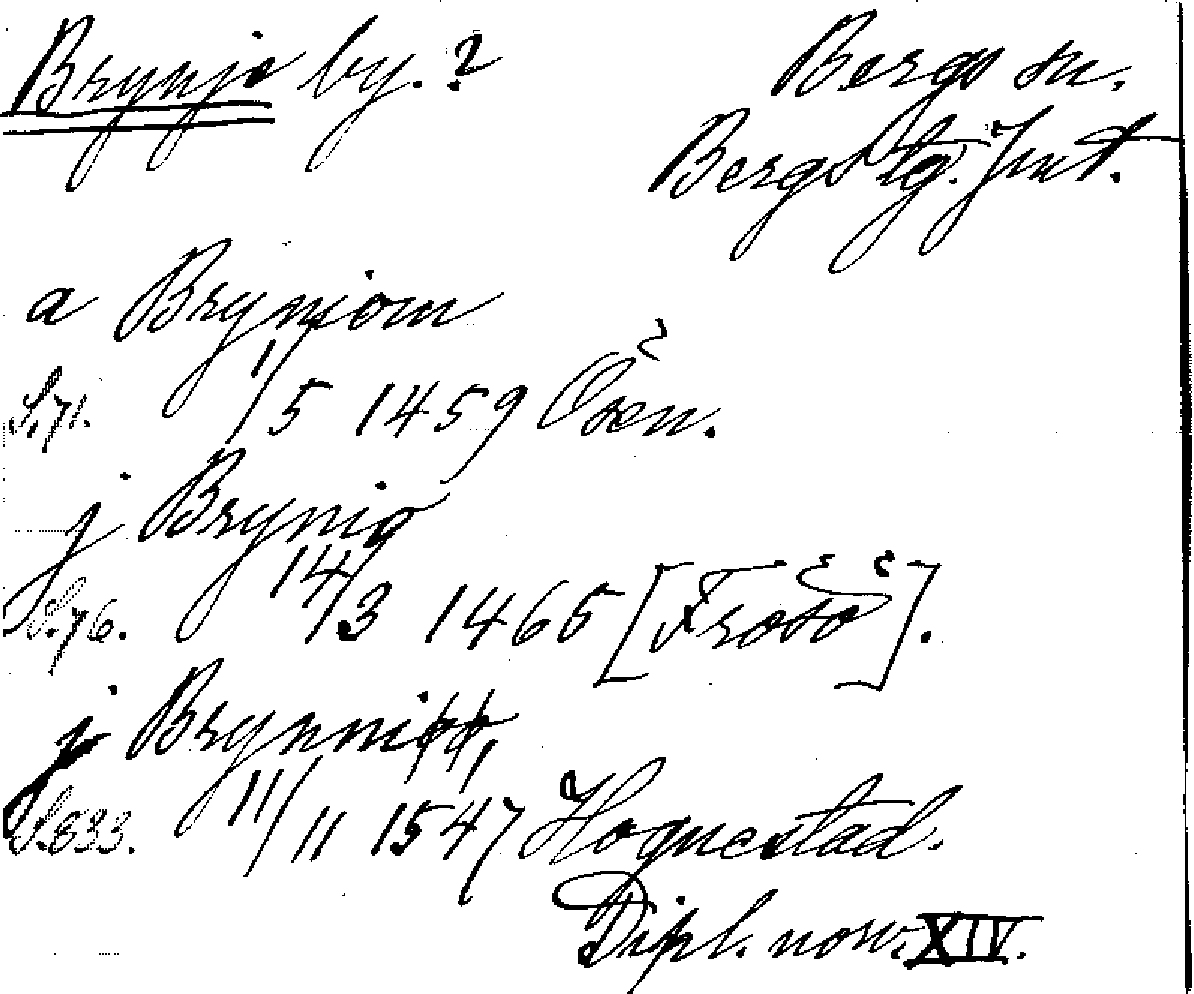 Brynje by.? Bergs sn.
Bergs tg. Jmt.
a Bryniom
S.71. 1/5 1459 Ösen.
j Brynio
S.76. 14/3 1465 [Frösö].
j Brynni
S.833. 11/11 1547 Hognestad.
Dipl. norv. XIV.